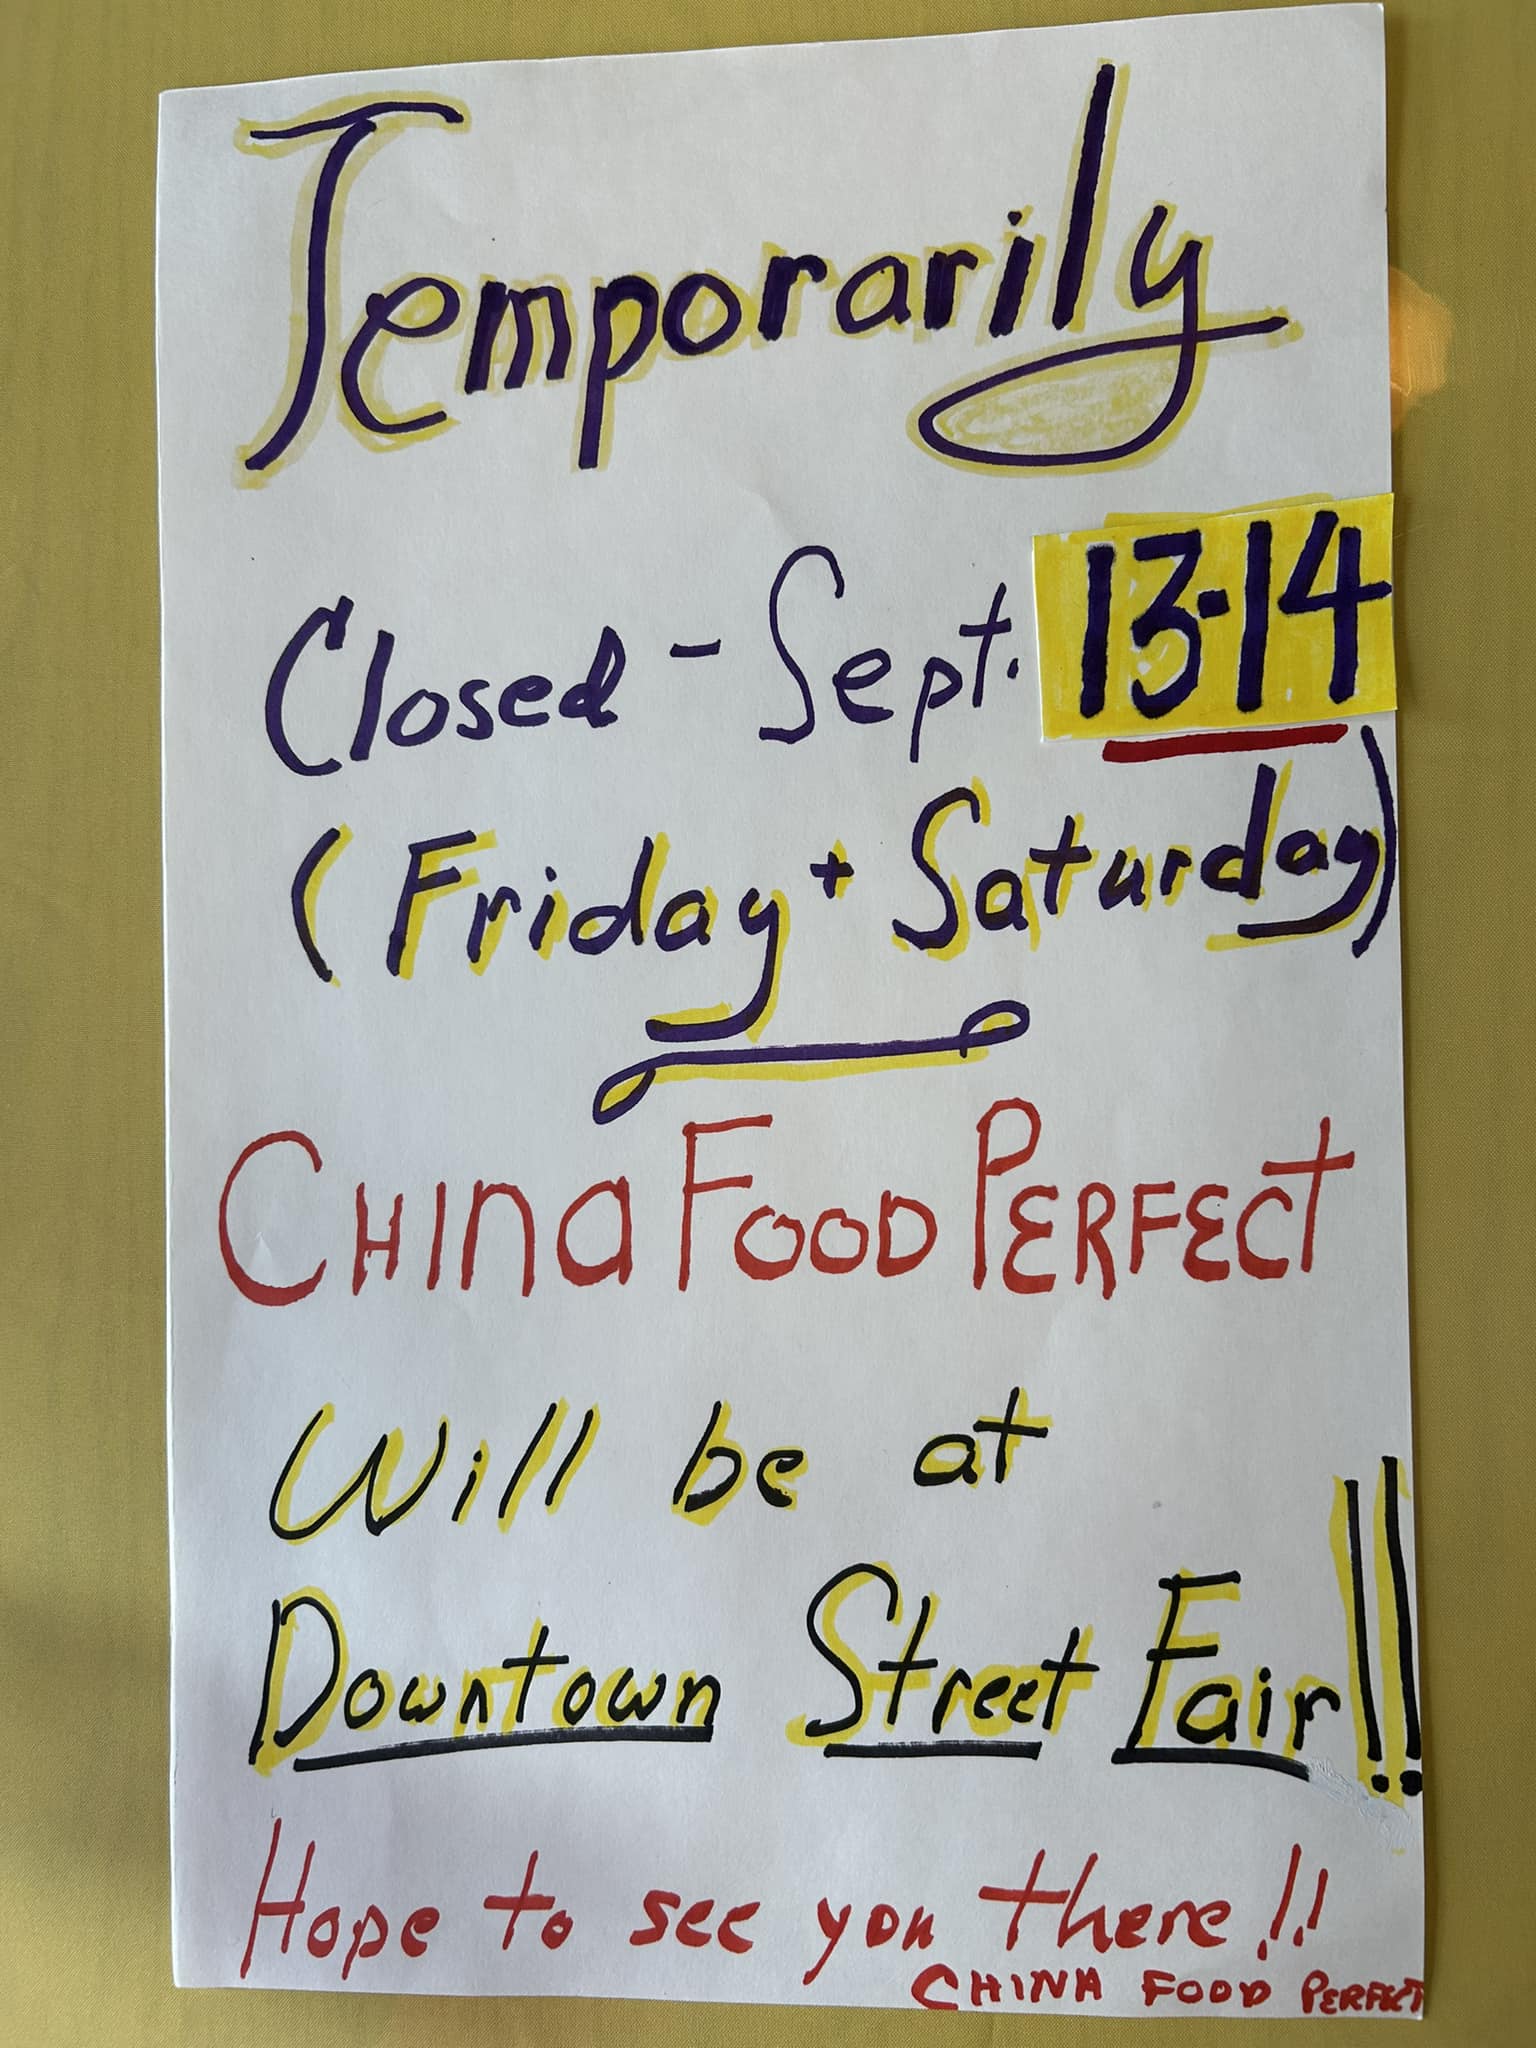 Temporarily
Closed - Sept. 13-14
(Friday + Saturday)
CHINA FOOD PERFECT
Will be at
Downtown Street Fair!!
Hope to see you there!!
CHINA FOOD PERFECT